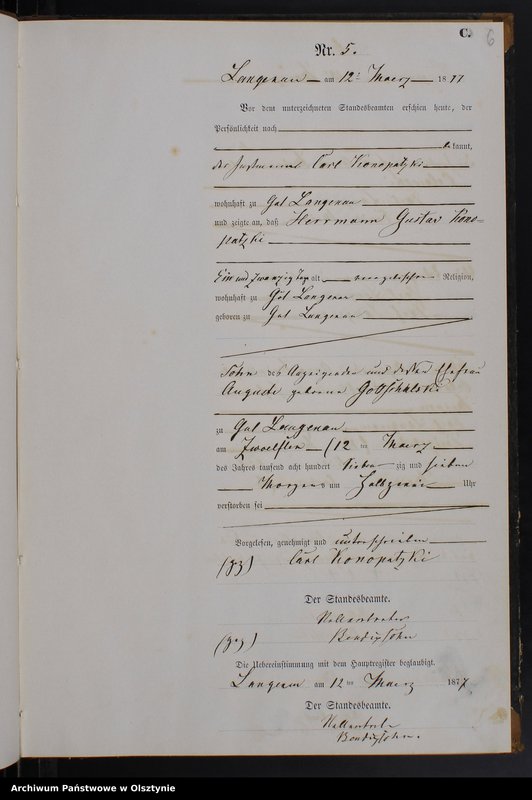 C.
6
Nr. 5.
Langenau am 12t Maerz 1877
Vor dem unterzeichneten Standesbeamten erschien heute, der
Persönlichkeit nach
bekannt,
der Instmann Carl Konopatzki
wohnhaft zu Gut Langenau
und zeigte an, daß Herrmann Gustav Kono-
patzki
Ein und zwanzig Tage alt evangelischer Religion,
wohnhaft zu Gut Langenau
geboren zu Gut Langenau
Sohn des Anzeigenden und dessen Ehefrau
Auguste geborene Gottschalski
zu Gut Langenau
am Zwoelften (12 ten Maerz
des Jahres tausend acht hundert sieben zig und sieben
Morgens um Uhr
verstorben sei
Vorgelesen, genehmigt und unterschrieben
(gz) Carl Konopatzki
Der Standesbeamte.
(gez) Bendixsohn
Die Uebereinstimmung mit dem Hauptregister beglaubigt.
Langenau am 12 ten Maerz 1877.
Der Standesbeamte.
Bendixsohn.
Archiwum Państwowe w Olsztynie